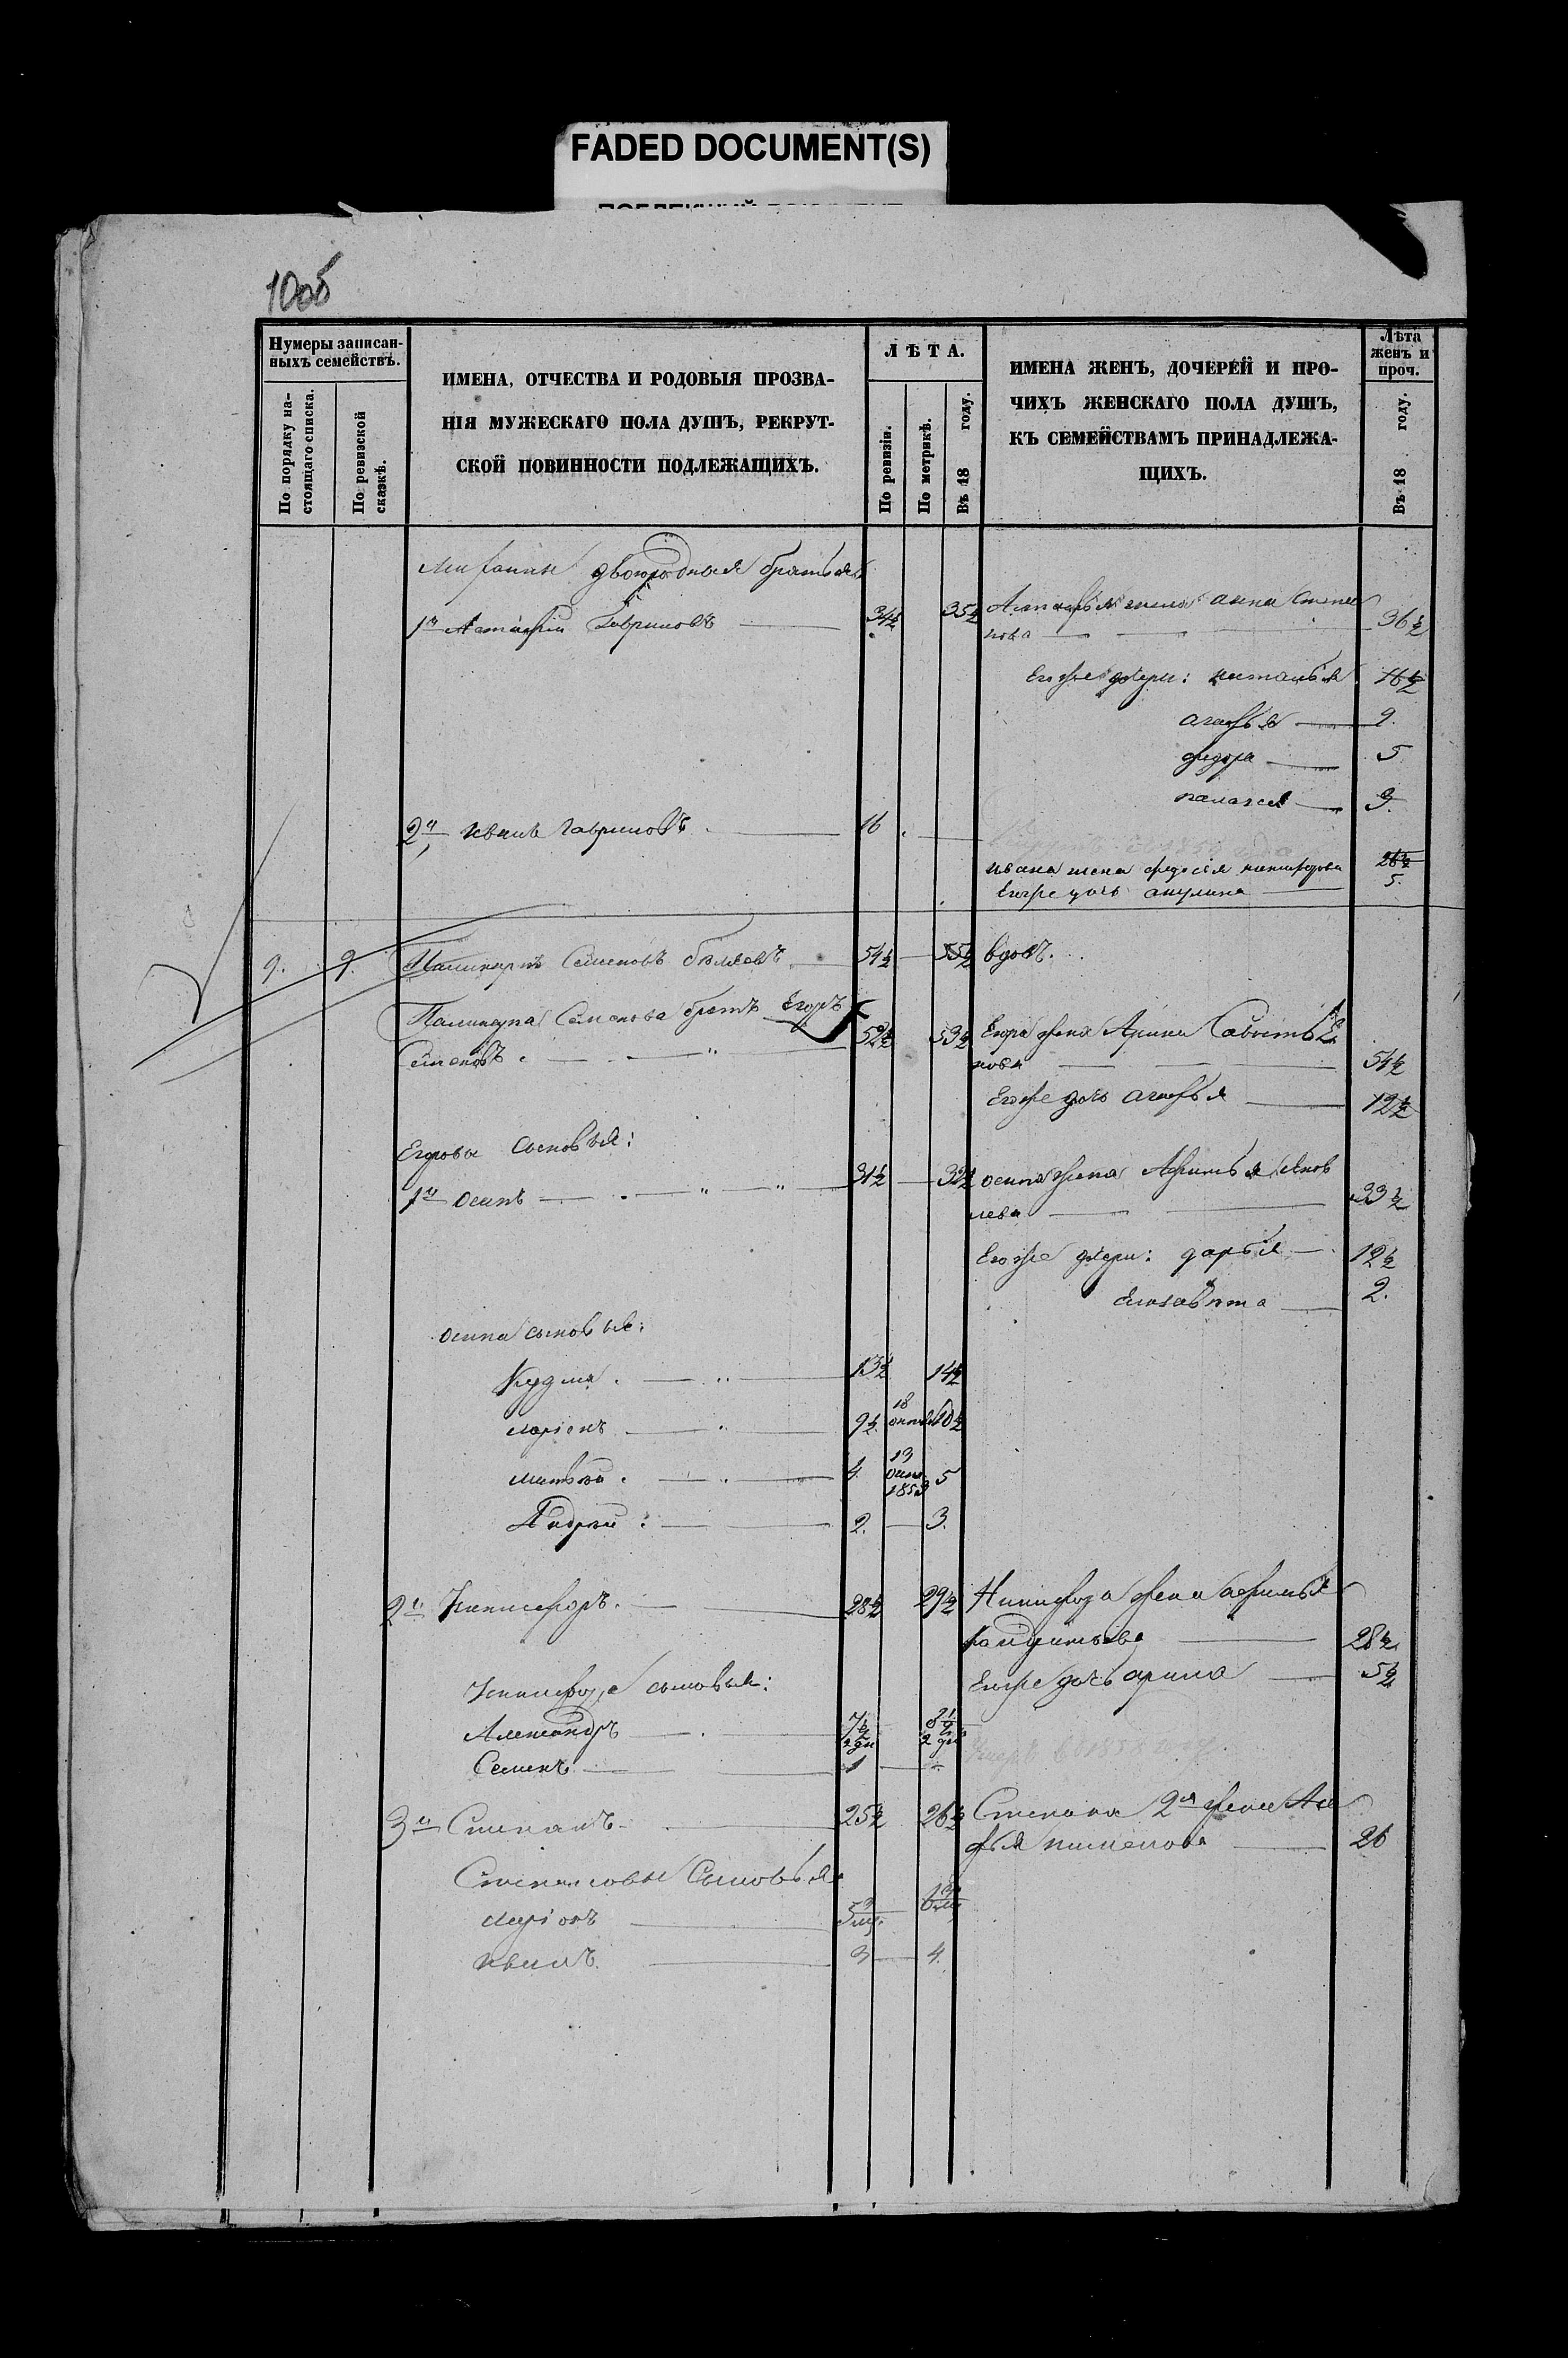 FADED DOCUMENT(S)
10об
Нумеры записан-
ныхъ семействъ.
По порядку на-
стоящаго списка.
По ревизской
сказкѣ.
ИМЕНА, ОТЧЕСТВА И РОДОВЫЯ ПРОЗВА-
НІЯ МУЖЕСКАГО ПОЛА ДУШЪ, РЕКРУТ-
СКОЙ ПОВИННОСТИ ПОДЛЕЖАЩИХЪ.
ЛѢТА.
По ревизіи.
По метрикѣ.
Въ 18 году.
ИМЕНА ЖЕНЪ, ДОЧЕРЕЙ И ПРО-
ЧИХЪ ЖЕНСКАГО ПОЛА ДУШЪ,
КЪ СЕМЕЙСТВАМЪ ПРИНАДЛЕЖА-
ЩИХЪ.
Лѣта
женъ и
проч.
Въ 18 году.
двоюродныя братья
1й Гавриловъ 34½ 35½ жена анна степа
нова 36½
Егоже дочери: наталья 16½
агафья 9.
федора 5
палагея 3.
2й иванъ Гавриловъ 16
ивана жена федосія никифорова 26½
Егоже дочь акулина 5.
9. 9. Поликарпъ Семеновъ 54½ 55½ вдовъ.
Поликарпа Семенова братъ Егоръ
Семеновъ. 52½ 53½ Егора жена Арина Савостья
нова 54½
Егоже дочь агафья 12½
Егоровы сыновья:
1й осипъ 31½ 32½ осипа жена Афимья яков
лева 33½
Егоже дочери: дарья 12½
Елизавѣта 2.
осипа сыновья:
Кузма 13½ 14½
ларіонъ 9½ 18 10½
матвей 4. 13 1853 5
Андрей 2. 3.
2й Никифоръ. 28½ 29½ Никифора жена афимья
28½
Егоже дочь арина 5½
Никифора сыновья:
Александръ 7½ 8½
Семенъ 1
умеръ въ 1858 году
3й Степанъ 25½ 26½ Степана 2я жена Ага
фья пименова 26
Степановы Сыновья
ларіонъ
иванъ 3 4.